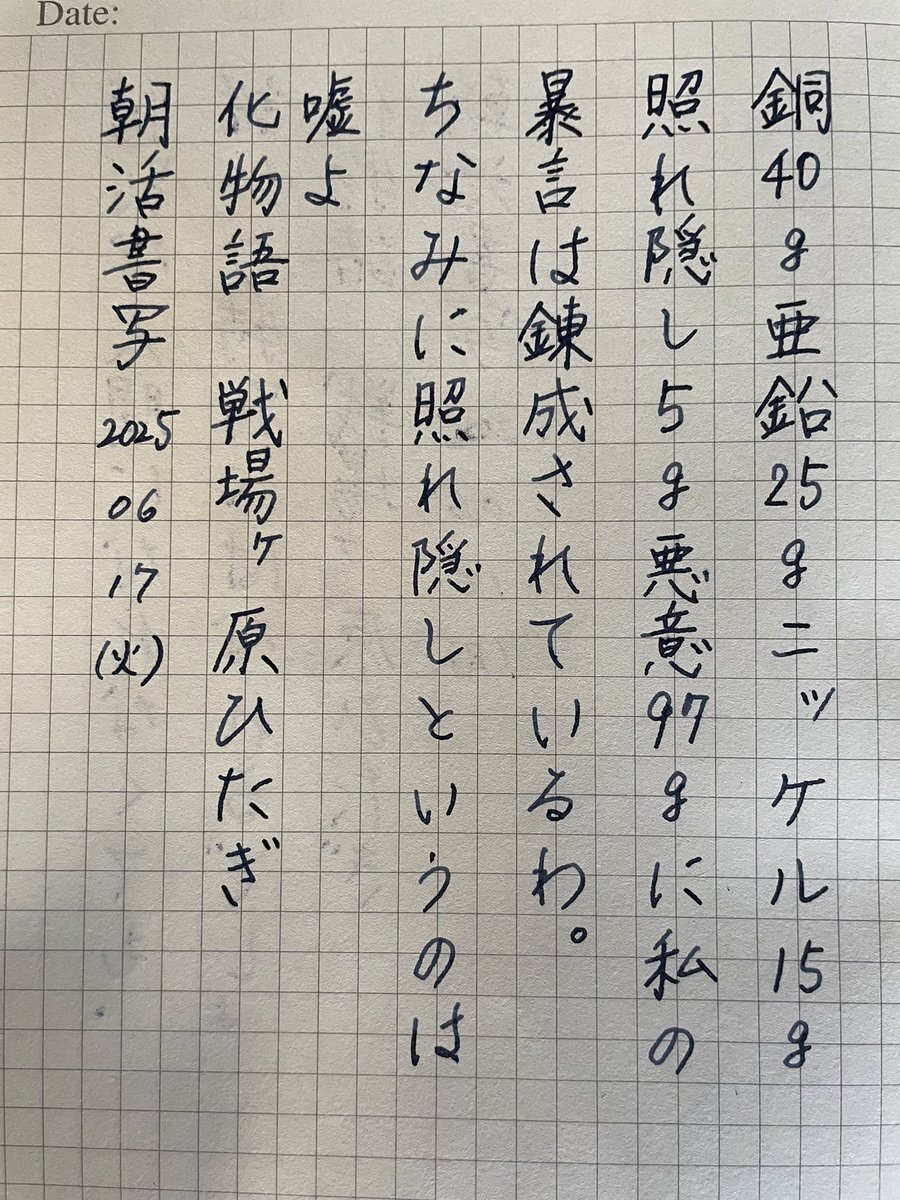 Date:
銅40g亜鉛25gニッケル15g
照れ隠し5g悪意97gに私の
暴言は錬成されているわ。
ちなみに照れ隠しというのは
嘘よ
化物語 戦場ヶ原ひたぎ
朝活書写 2025 06 17 (火)